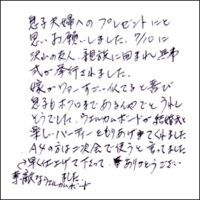 息子夫婦へのプレゼントにと
思いお願いしました。7/10に
沢山の友人、親族に囲まれ無事
式が挙行されました。
嫁がワァーすごい似てると喜び
息子もホクロまであるんやでとうれし
そうでした。ウェルカムボードが結婚式と
楽しいパーティーをもりあげてくれました
A4の方は二次会で使うと言ってました
早く仕上げて下さってありがとうござい
ました。
素敵なウェルカムボード